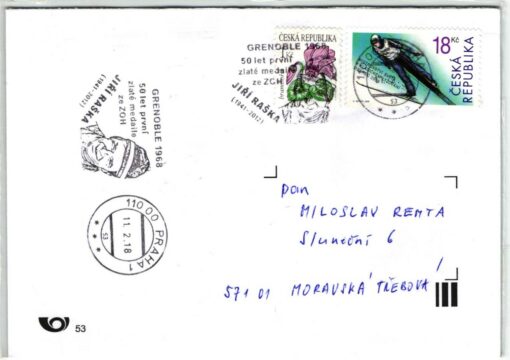 GRENOBLE 1968
50 let první
zlaté medaile
ze ZOH
JIŘÍ RAŠKA
(1941-2012)
ČESKÁ REPUBLIKA
GRENOBLE 1968
50 let první
zlaté medaile
ze ZOH
JIŘÍ RAŠKA
(1941-2012)
18 Kč
ČESKÁ
REPUBLIKA
110 00 PRAHA 1
11.2.18
53
pan
MILOSLAV REMTA
Sluneční 6
571 01 MORAVSKÁ TŘEBOVÁ
53